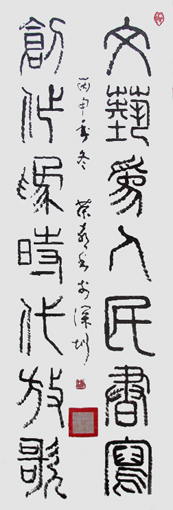 文藝爲人民書寫
創作爲時代放歌
丙申年冬 榮 於深圳